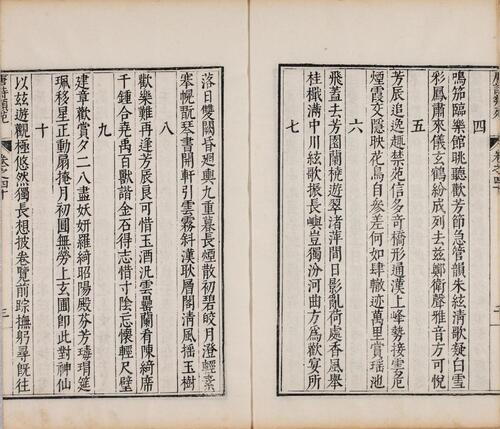 四
鳴笳臨樂館眺聽歡芳節急管韻朱絃清歌凝白雪
彩鳳肅來儀玄鶴紛成列去茲鄭衛聲雅音方可悅
五
芳辰追逸趣禁苑信多奇橋形通漢上峰勢接雲危
煙霞交隱映花鳥自參差何如肆轍迹萬里賞瑤池
六
飛蓋去芳園蘭橈遊翠渚萍間日影亂荷處香風舉
桂檝滿中川絃歌振長嶼豈獨汾河曲方為歡宴所
七
落日雙闕昏迴輿九重暮長煙散初碧皎月澄輕素
搴幌翫琴書開軒引雲霧斜漢耿層閣清風搖玉樹
八
歡樂難再逢芳辰良可惜玉酒泛雲罍蘭肴陳綺席
千鍾合堯禹百獸諧金石得志惜寸陰忘懷輕尺璧
九
建章歡賞夕二八盡妖妍羅綺昭陽殿芬芳瑇瑁筵
珮移星正動扇掩月初圓無勞上玄圃即此對神仙
十
以茲遊觀極悠然獨長想披卷覽前踪撫躬尋既往
唐詩類苑 卷之四十 三